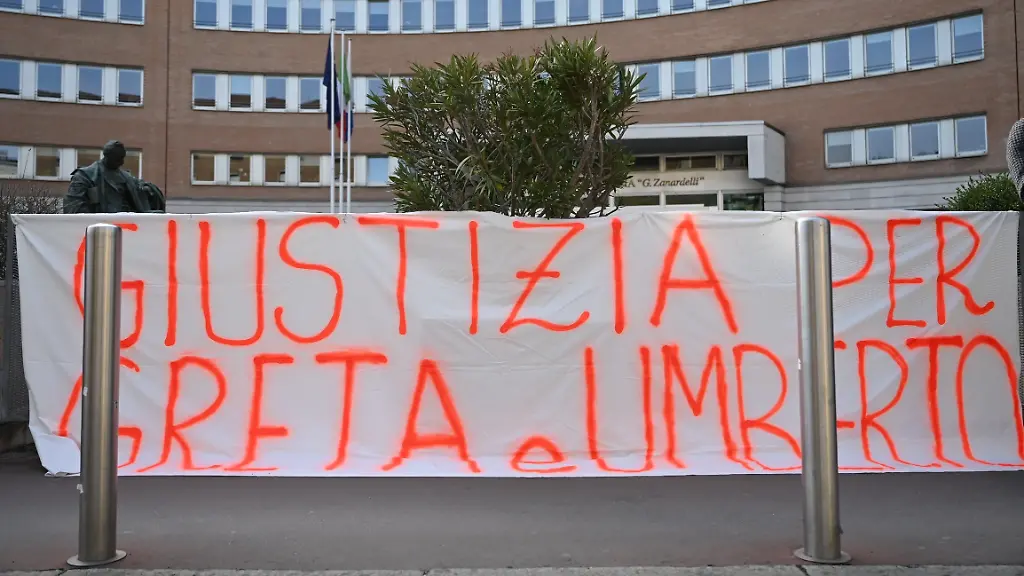 "G. Zanardelli"
GIUSTIZIA PER
GRETA e UMBERTO